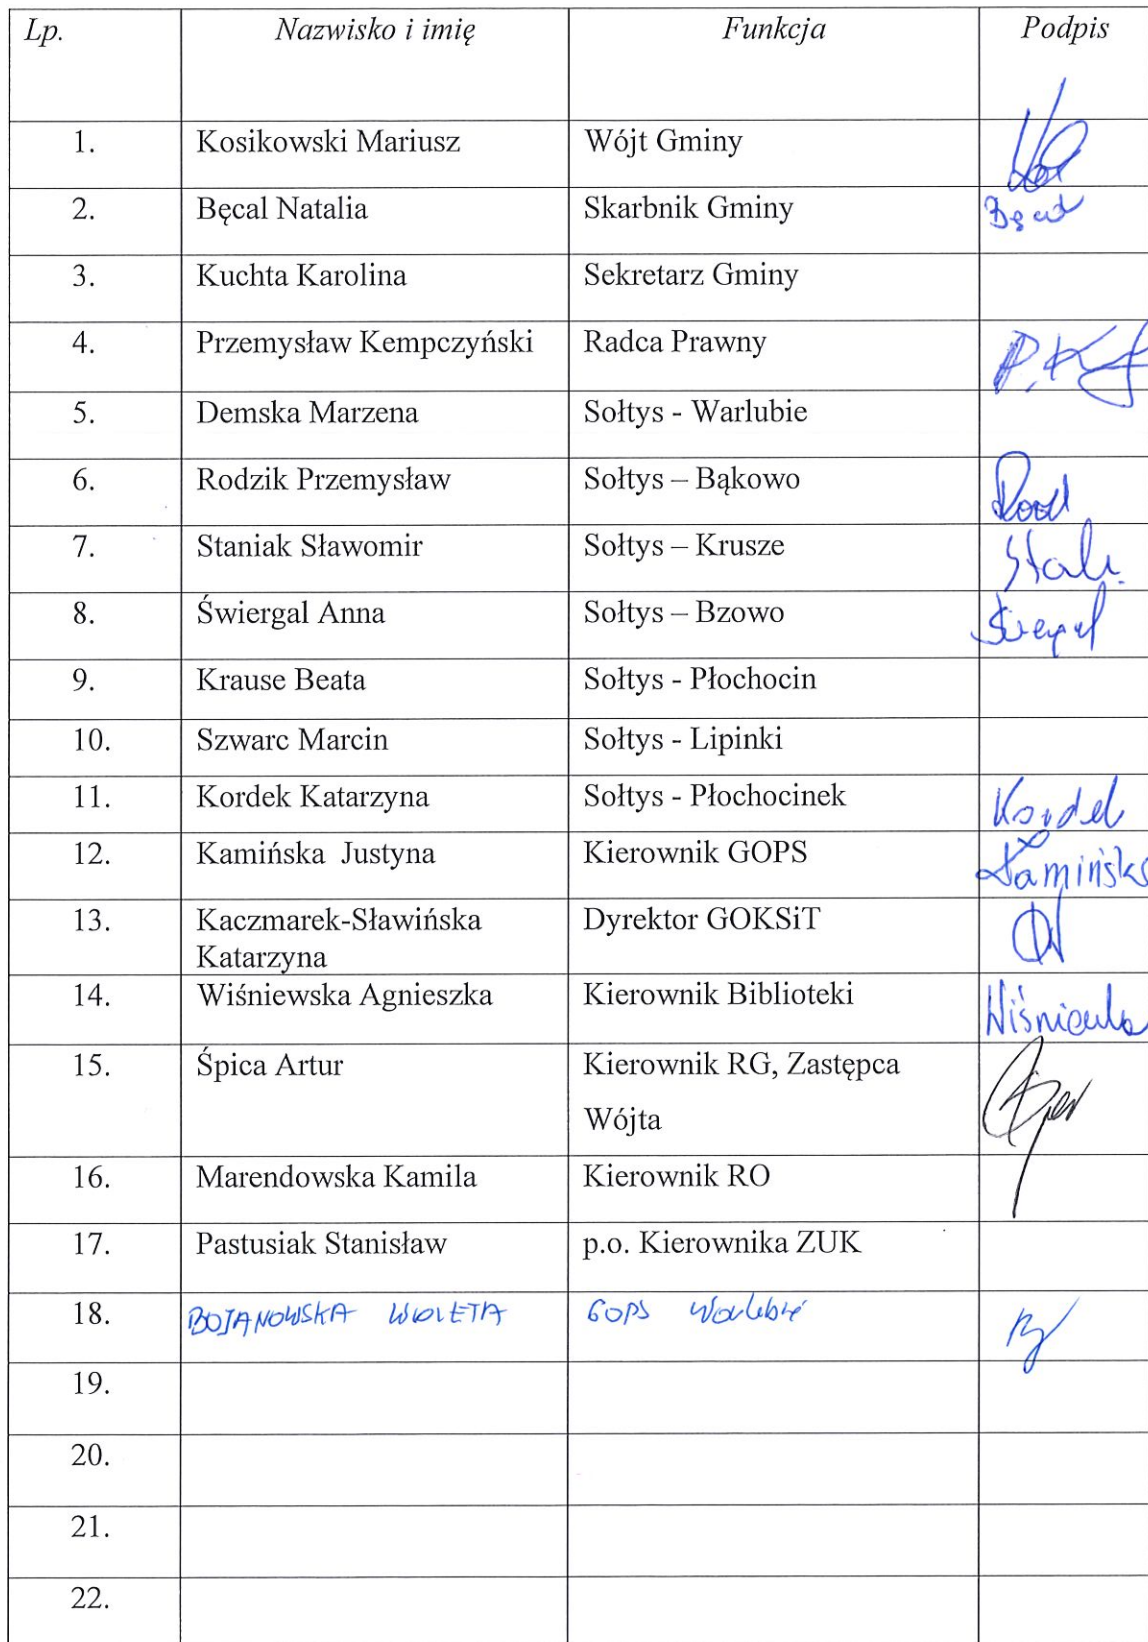 Lp. Nazwisko i imię Funkcja Podpis
1. Kosikowski Mariusz Wójt Gminy
2. Bęcal Natalia Skarbnik Gminy
3. Kuchta Karolina Sekretarz Gminy
4. Przemysław Kempczyński Radca Prawny
5. Demska Marzena Sołtys - Warlubie
6. Rodzik Przemysław Sołtys – Bąkowo
7. Staniak Sławomir Sołtys – Krusze
8. Świergal Anna Sołtys – Bzowo
9. Krause Beata Sołtys - Płochocin
10. Szwarc Marcin Sołtys - Lipinki
11. Kordek Katarzyna Sołtys - Płochocinek Kordek
12. Kamińska Justyna Kierownik GOPS Kamińska
13. Kaczmarek-Sławińska Dyrektor GOKSiT
Katarzyna
14. Wiśniewska Agnieszka Kierownik Biblioteki
15. Śpica Artur Kierownik RG, Zastępca
Wójta
16. Marendowska Kamila Kierownik RO
17. Pastusiak Stanisław p.o. Kierownika ZUK
18. BOJANOWSKA WIOLETA GOPS Warlubie
19.
20.
21.
22.